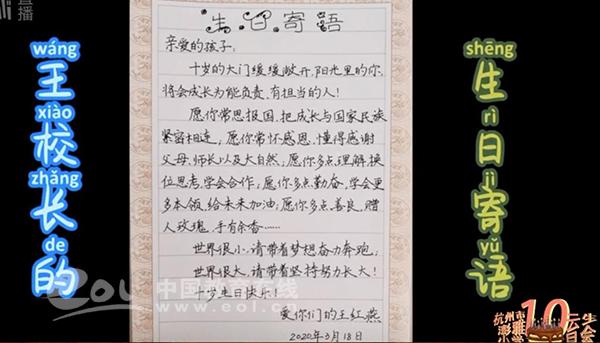 直播
wáng
王
xiào
校
zhǎng
长
de
的
生日寄语
亲爱的孩子:
十岁的大门缓缓敞开,阳光里的你,
将会成长为能负责,有担当的人!
愿你常思报国,把成长与国家民族
紧密相连;愿你常怀感恩,懂得感谢
父母、师长以及大自然;愿你多点理解,换
位思考,学会合作;愿你多点勤奋,学会更
多本领,给未来加油;愿你多点善良,赠
人玫瑰,手有余香……
世界很小,请带着梦想奋力奔跑;
世界很大,请带着坚持努力长大!
十岁生日快乐!
爱你们的王红燕
2020年3月18日
shēng
生
rì
日
jì
寄
yǔ
语
eol 中国教育在线
www.eol.cn
杭州市
澎雅
小学
10
云生
日会